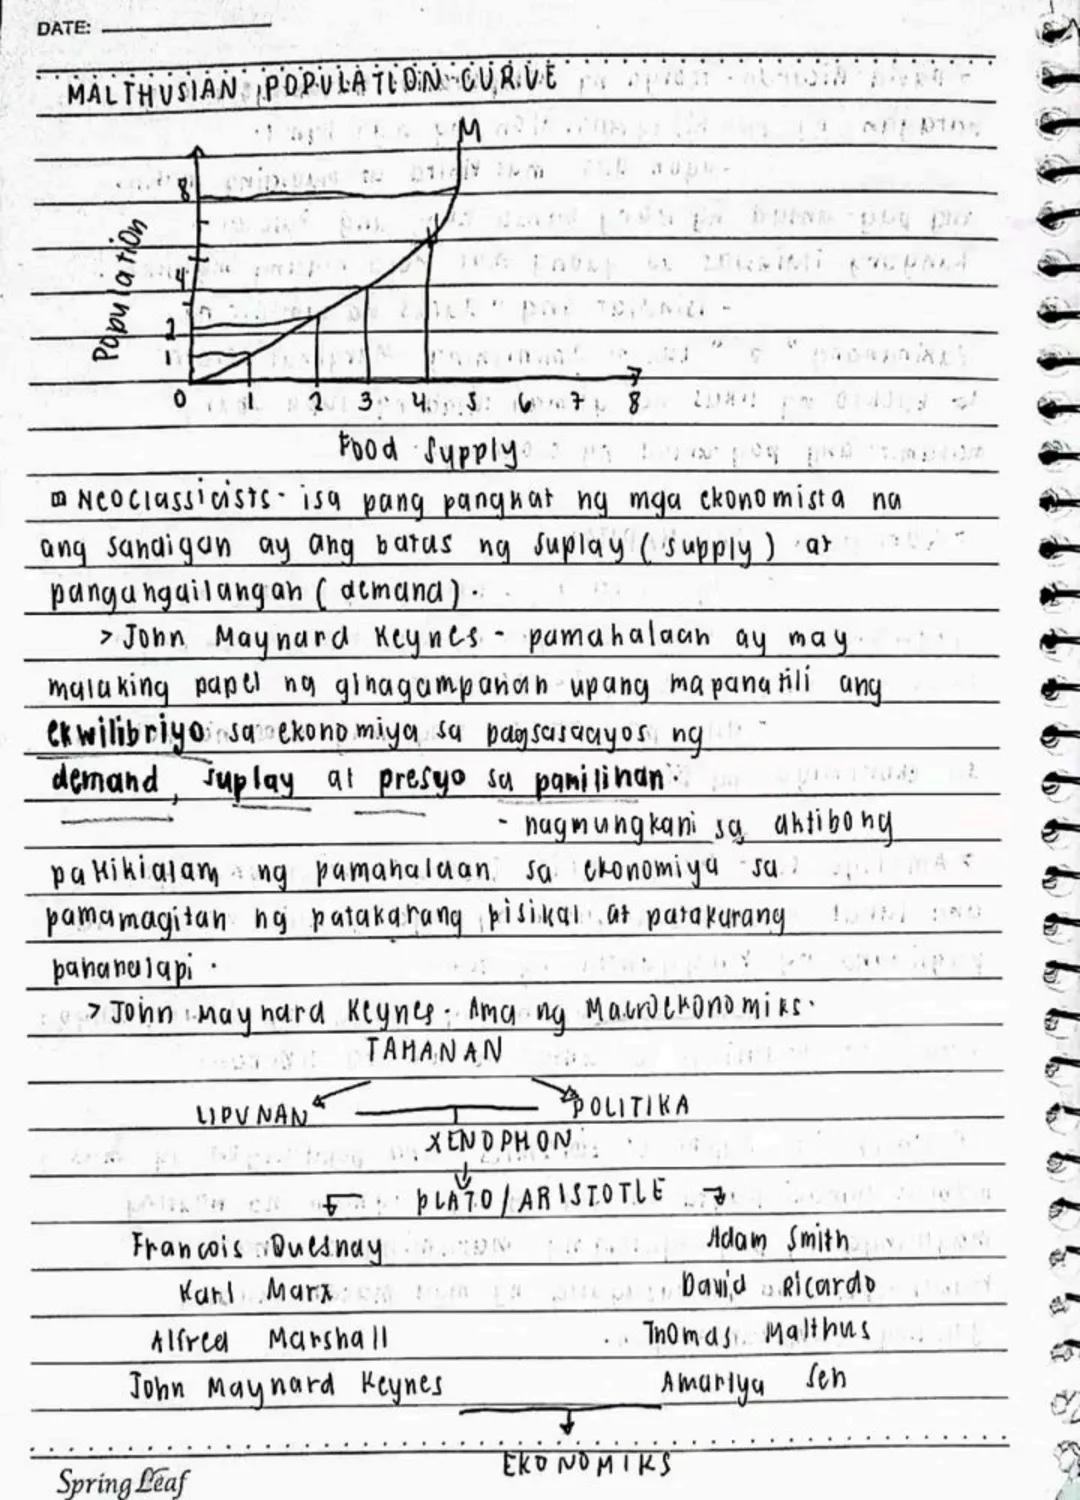 DATE:
MALTHUSIAN POPULATION CURVE
M
8
4
2
1
Population
0 1 2 3 4 5 6 7 8
Food Supply
Neoclassicists - isa pang pangkat ng mga ekonomista na
ang sandigan ay ang batas ng suplay (supply) at
pangangailangan (demand).
> John Maynard Keynes - pamahalaan ay may
malaking papel na ginagampanan upang mapanatili ang
ekwilibriyo sa ekonomiya sa pagsasaayos ng
demand, suplay at presyo sa pamilihan.
- nagmungkahi sa aktibong
pakikialam ng pamahalaan sa ekonomiya sa
pamamagitan ng patakarang pisikal at patakarang
pananalapi.
> John Maynard Keynes - Ama ng Macroekonomiks.
TAHANAN
LIPUNAN POLITIKA
XENOPHON
PLATO/ARISTOTLE
Francois Quesnay Adam Smith
Karl Marx David Ricardo
Alfred Marshall Thomas Malthus
John Maynard Keynes Amartya Sen
EKONOMIKS
Spring Leaf